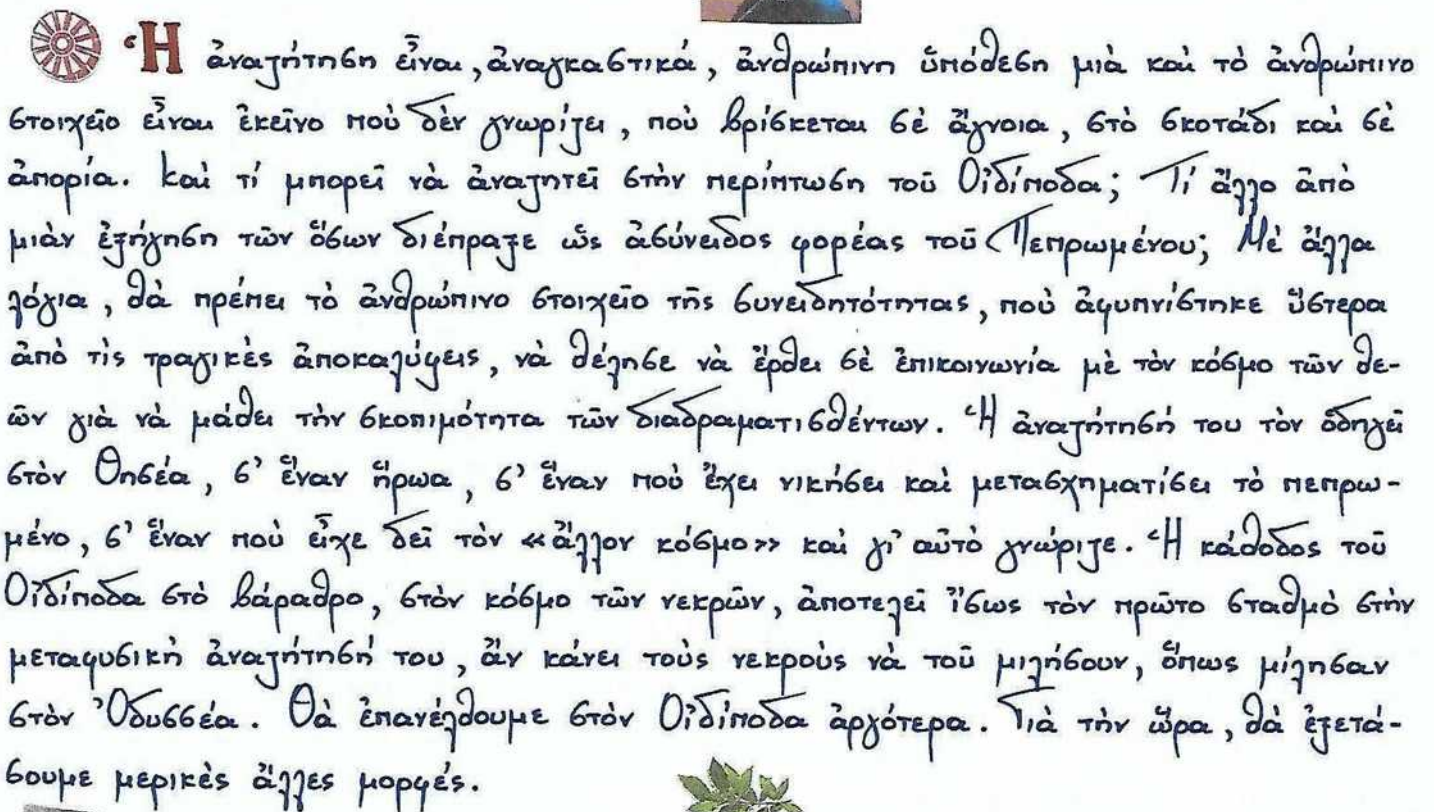 Ἡ ἀναζήτηση εἶναι, ἀναγκαστικά, ἀνθρώπινη ὑπόθεση μιὰ καὶ τὸ ἀνθρώπινο
στοιχεῖο εἶναι ἐκεῖνο ποὺ δὲν γνωρίζει, ποὺ βρίσκεται σὲ ἄγνοια, στὸ σκοτάδι καὶ σὲ
ἀπορία. Καὶ τί μπορεῖ νὰ ἀναζητεῖ στὴν περίπτωση τοῦ Οἰδίποδα; Τί ἄλλο ἀπὸ
μιὰν ἐξήγηση τῶν ὅσων διέπραξε ὡς ἀσύνειδος φορέας τοῦ Πεπρωμένου; Μὲ ἄλλα
λόγια, θὰ πρέπει τὸ ἀνθρώπινο στοιχεῖο τῆς συνειδητότητας, ποὺ ἀφυπνίστηκε ὕστερα
ἀπὸ τὶς τραγικὲς ἀποκαλύψεις, νὰ θέλησε νὰ ἔρθει σὲ ἐπικοινωνία μὲ τὸν κόσμο τῶν θε-
ῶν γιὰ νὰ μάθει τὴν σκοπιμότητα τῶν διαδραματισθέντων. Ἡ ἀναζήτησή του τὸν ὁδηγεῖ
στὸν Θησέα, σ' ἕναν ἥρωα, σ' ἕναν ποὺ ἔχει νικήσει καὶ μετασχηματίσει τὸ πεπρω-
μένο, σ' ἕναν ποὺ εἶχε δεῖ τὸν «ἄλλον κόσμο» καὶ γι' αὐτὸ γνώριζε. Ἡ κάθοδος τοῦ
Οἰδίποδα στὸ βάραθρο, στὸν κόσμο τῶν νεκρῶν, ἀποτελεῖ ἴσως τὸν πρῶτο σταθμὸ στὴν
μεταφυσικὴ ἀναζήτησή του, ἂν κάνει τοὺς νεκροὺς νὰ τοῦ μιλήσουν, ὅπως μίλησαν
στὸν Ὀδυσσέα. Θὰ ἐπανέλθουμε στὸν Οἰδίποδα ἀργότερα. Γιὰ τὴν ὥρα, θὰ ἐξετά-
σουμε μερικὲς ἄλλες μορφές.